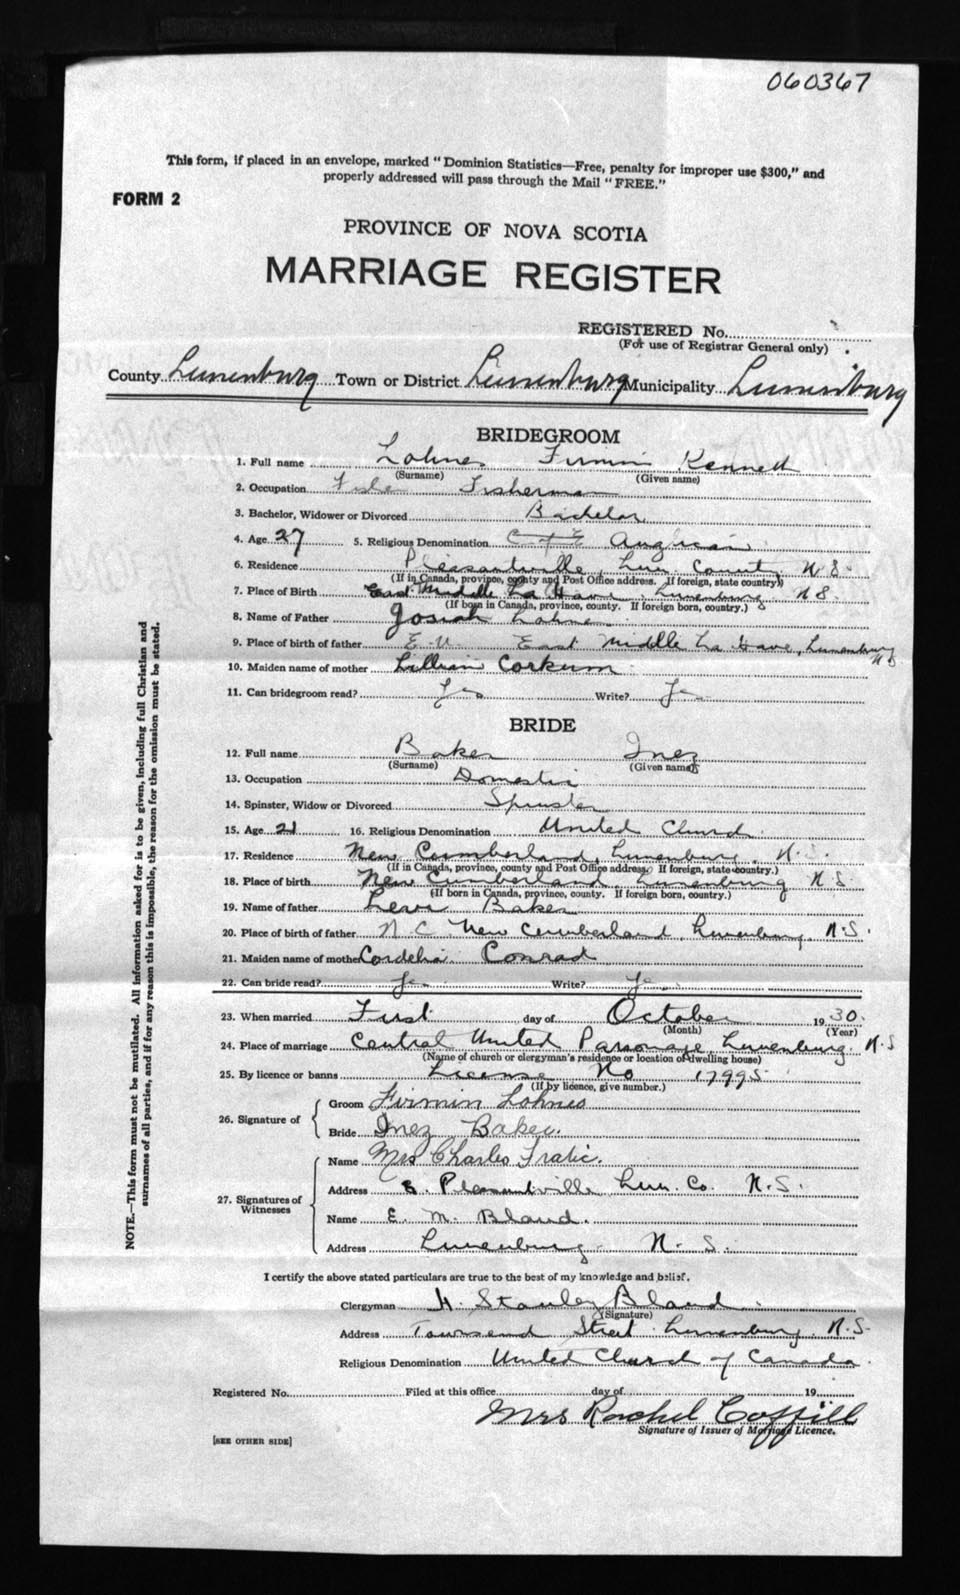 060367
This form, if placed in an envelope, marked "Dominion Statistics—Free, penalty for improper use $300," and
properly addressed will pass through the Mail "FREE."
FORM 2
PROVINCE OF NOVA SCOTIA
MARRIAGE REGISTER
REGISTERED No.
(For use of Registrar General only)
County Lunenburg Town or District Lunenburg Municipality Lunenburg
BRIDEGROOM
1. Full name Lohnes Firmin Kenneth
(Surname) (Given name)
2. Occupation Fisherman
3. Bachelor, Widower or Divorced Bachelor
4. Age 27 5. Religious Denomination C of E Anglican
6. Residence Pleasantville, Lun. County N S.
(If in Canada, province, county and Post Office address. If foreign, state country)
7. Place of Birth East Middle La Have, Lunenburg N S.
(If born in Canada, province, county. If foreign born, country.)
8. Name of Father Josiah Lohnes
9. Place of birth of father East Middle La Have, Lunenburg
N S
10. Maiden name of mother Lillian Corkum
11. Can bridegroom read? Yes Write? Yes
BRIDE
12. Full name Baker Inez
(Surname) (Given name)
13. Occupation Domestic
14. Spinster, Widow or Divorced Spinster
15. Age 21 16. Religious Denomination United Church
17. Residence New Cumberland, Lunenburg, N.S.
(If in Canada, province, county and Post Office address. If foreign, state country.)
18. Place of birth New Cumberland, Lunenburg N S.
(If born in Canada, province, county. If foreign born, country.)
19. Name of father Levi Baker
20. Place of birth of father N. C. New Cumberland, Lunenburg, N.S.
21. Maiden name of mother Cordelia Conrad
22. Can bride read? Yes Write? Yes
23. When married First day of October 1930.
(Month) (Year)
24. Place of marriage Central United Parsonage, Lunenburg. N.S
(Name of church or clergyman's residence or location of dwelling house)
25. By licence or banns License No 17995
(If by licence, give number.)
26. Signature of
Groom Firmin Lohnes
Bride Inez Baker.
27. Signatures of Witnesses
Name Mrs Charles
Address S. Pleasantville Lun. Co. N.S.
Name E. M. Bland.
Address Lunenburg N. S.
I certify the above stated particulars are true to the best of my knowledge and belief.
Clergyman H. Stanley Bland
(Signature)
Address Townsend Street Lunenburg, N.S.
Religious Denomination United Church of Canada.
Registered No. Filed at this office day of 19
Mrs Rachel Coffill
Signature of Issuer of Marriage Licence.
[SEE OTHER SIDE]
NOTE.—This form must not be mutilated. All information asked for is to be given, including full Christian and
surnames of all parties, and if for any reason this is impossible, the reason for the omission must be stated.